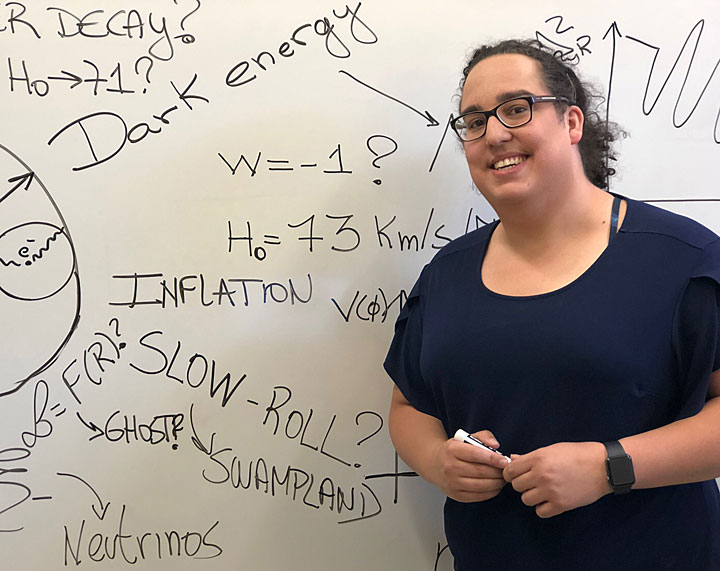 ER DECAY?
H₀→71?
Dark energy
W=-1?
H₀=73 Km/s/M
e⁻
INFLATION
V(φ)
L=F(R)?
SLOW-ROLL?
GHOST?
SWAMPLAND
Neutrinos